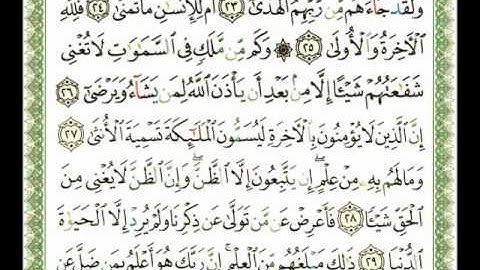 وَلَقَدْ جَاءَهُم مِّن رَّبِّهِمُ الْهُدَىٰ ﴿٢٣﴾ أَمْ لِلْإِنسَانِ مَا تَمَنَّىٰ ﴿٢٤﴾ فَلِلَّهِ
الْآخِرَةُ وَالْأُولَىٰ ﴿٢٥﴾ ۞ وَكَم مِّن مَّلَكٍ فِي السَّمَاوَاتِ لَا تُغْنِي
شَفَاعَتُهُمْ شَيْئًا إِلَّا مِن بَعْدِ أَن يَأْذَنَ اللَّهُ لِمَن يَشَاءُ وَيَرْضَىٰ ﴿٢٦﴾
إِنَّ الَّذِينَ لَا يُؤْمِنُونَ بِالْآخِرَةِ لَيُسَمُّونَ الْمَلَائِكَةَ تَسْمِيَةَ الْأُنثَىٰ
﴿٢٧﴾ وَمَا لَهُم بِهِ مِنْ عِلْمٍ ۖ إِن يَتَّبِعُونَ إِلَّا الظَّنَّ ۖ وَإِنَّ الظَّنَّ لَا يُغْنِي مِنَ
الْحَقِّ شَيْئًا ﴿٢٨﴾ فَأَعْرِضْ عَن مَّن تَوَلَّىٰ عَن ذِكْرِنَا وَلَمْ يُرِدْ إِلَّا الْحَيَاةَ
الدُّنْيَا ﴿٢٩﴾ ذَٰلِكَ مَبْلَغُهُم مِّنَ الْعِلْمِ ۚ إِنَّ رَبَّكَ هُوَ أَعْلَمُ بِمَن ضَلَّ عَن